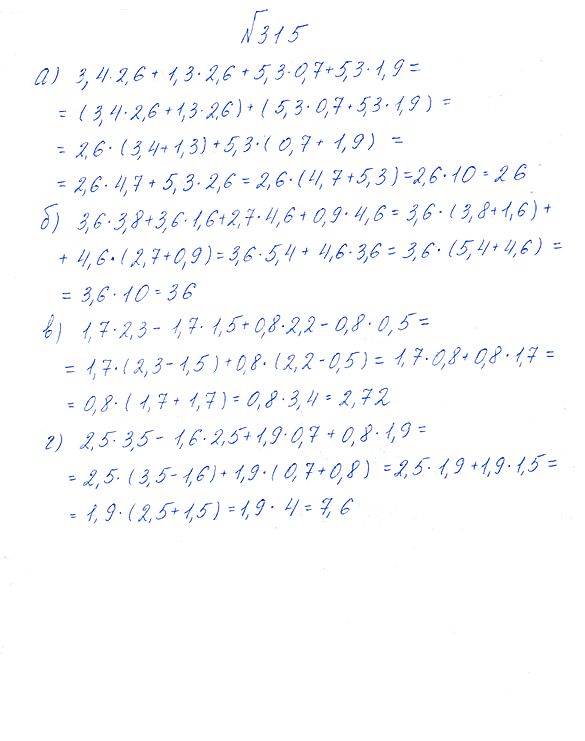 №315
а) 3,4·2,6 + 1,3·2,6 + 5,3·0,7 + 5,3·1,9 =
= (3,4·2,6 + 1,3·2,6) + (5,3·0,7 + 5,3·1,9) =
= 2,6·(3,4 + 1,3) + 5,3·(0,7 + 1,9) =
= 2,6·4,7 + 5,3·2,6 = 2,6·(4,7 + 5,3) = 2,6·10 = 26
б) 3,6·3,8 + 3,6·1,6 + 2,7·4,6 + 0,9·4,6 = 3,6·(3,8 + 1,6) +
+ 4,6·(2,7 + 0,9) = 3,6·5,4 + 4,6·3,6 = 3,6·(5,4 + 4,6) =
= 3,6·10 = 36
в) 1,7·2,3 - 1,7·1,5 + 0,8·2,2 - 0,8·0,5 =
= 1,7·(2,3 - 1,5) + 0,8·(2,2 - 0,5) = 1,7·0,8 + 0,8·1,7 =
= 0,8·(1,7 + 1,7) = 0,8·3,4 = 2,72
г) 2,5·3,5 - 1,6·2,5 + 1,9·0,7 + 0,8·1,9 =
= 2,5·(3,5 - 1,6) + 1,9·(0,7 + 0,8) = 2,5·1,9 + 1,9·1,5 =
= 1,9·(2,5 + 1,5) = 1,9·4 = 7,6